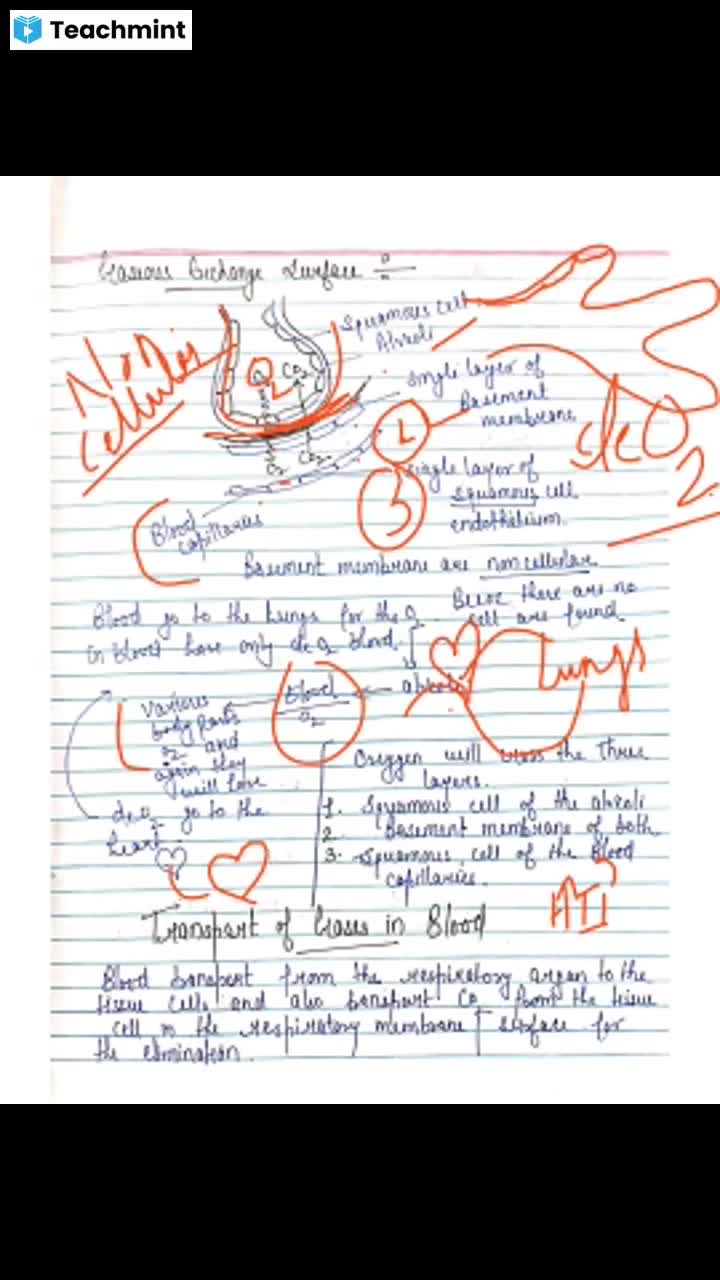 Teachmint
Gaseous Exchange Surface :-
Squamous cell
Alveoli
Non
cellular
O2
CO2
single layer of
Basement
membrane
2
3
deO2
single layer of
squamous cell
endothelium
O2
CO2
Blood
capillaries
Basement membrane are non cellular
there are no
cell are found
Blood go to the lungs for the O2
in blood have only deO2 blood
Lungs
Various
body parts
O2 and
again they
will have
Blood
O2
alveoli
deO2 go to the
heart
Oxygen will cross the three
layers.
1. Squamous cell of the alveoli
2. Basement membrane of both
3. Squamous cell of the Blood
capillaries.
Transport of Gases in Blood
Blood transport from the respiratory organ to the
tissue cells and also transport CO2 from the tissue
cell to the respiratory membrane surface for
the elimination.